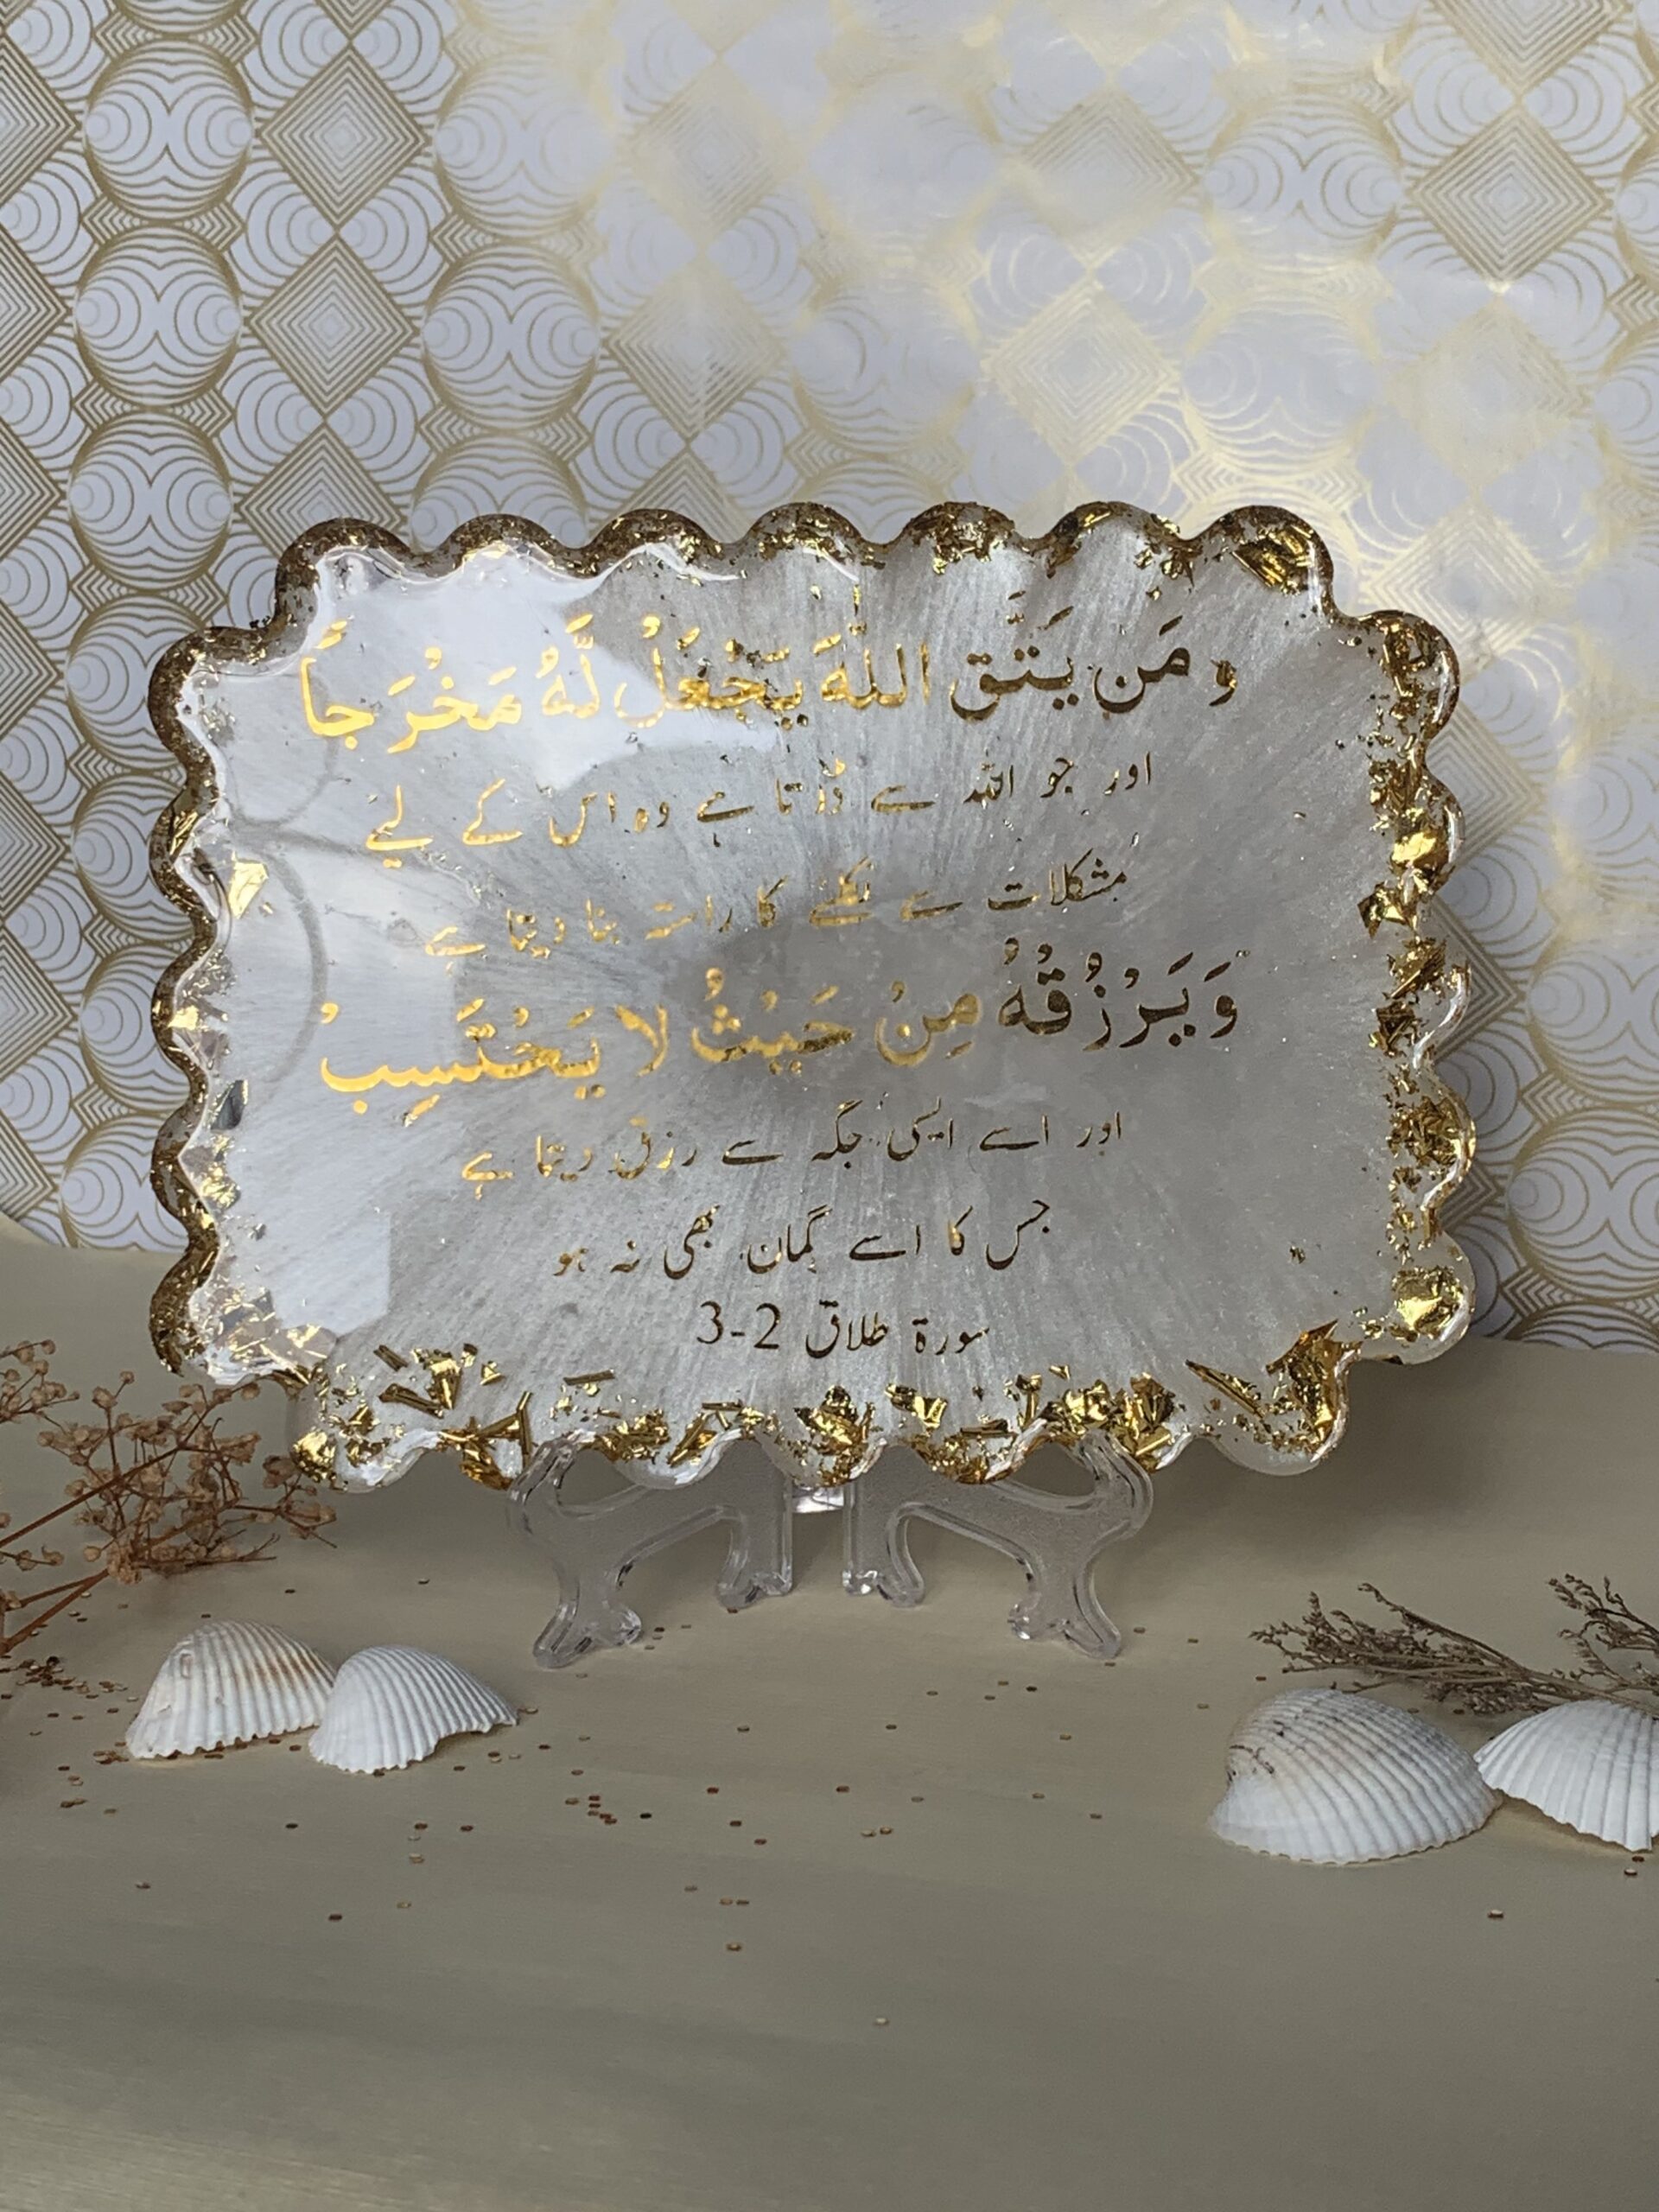 و مَن يَتَّق اللَّهَ يَجْعَلْ لَّهُ مَخْرَجاً
اور جو اللہ سے ڈرتا ہے وہ اس کے لیے
مشکلات سے نکلنے کا راستہ بنا دیتا ہے
وَيَرْزُقْهُ مِنْ حَيْثُ لا يَحْتَسِبْ
اور اسے ایسی جگہ سے رزق دیتا ہے
جس کا اسے گمان بھی نہ ہو
سورۃ طلاق 2-3